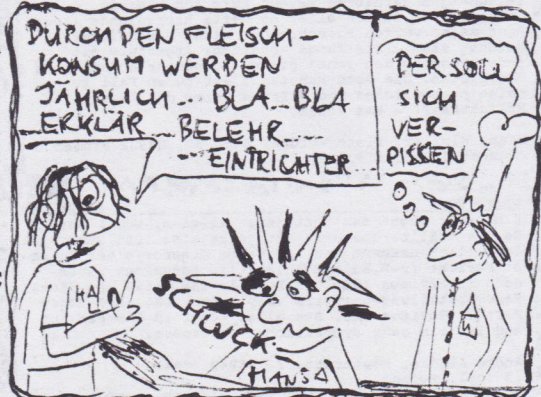 DURCH DEN FLEISCH-
KONSUM WERDEN
JÄHRLICH... BLA..BLA
...ERKLÄR...BELEHR...
...EINTRICHTER...
DER SOLL
SICH
VER-
PISSEN
SCHLUCK
HANSA